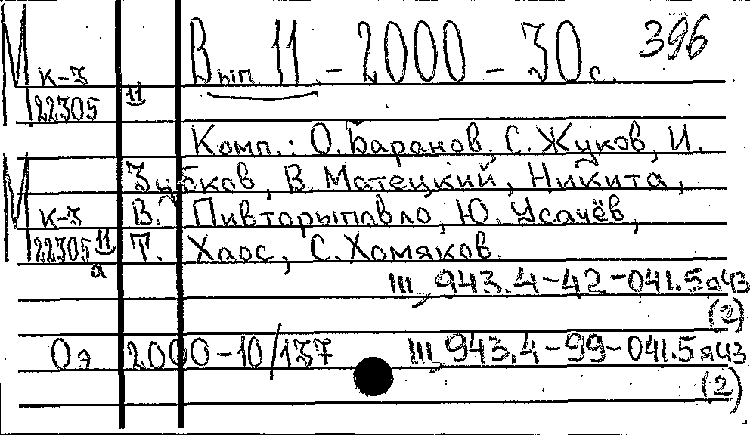 М к-з Вып. 11. - 2000 - 30 с. 396
22305 11
Комп.: О. Баранов, С. Жуков, И.
М Зубков, В. Матецкий, Никита,
к-з В. Пивторыпавло, Ю. Усачёв,
22305 11 Т. Хаос, С. Хомяков.
а
Ш 943.4-42-041.5я43
(2)
Оэ 2000-10/137 Ш 943.4-99-041.5я43
(2)